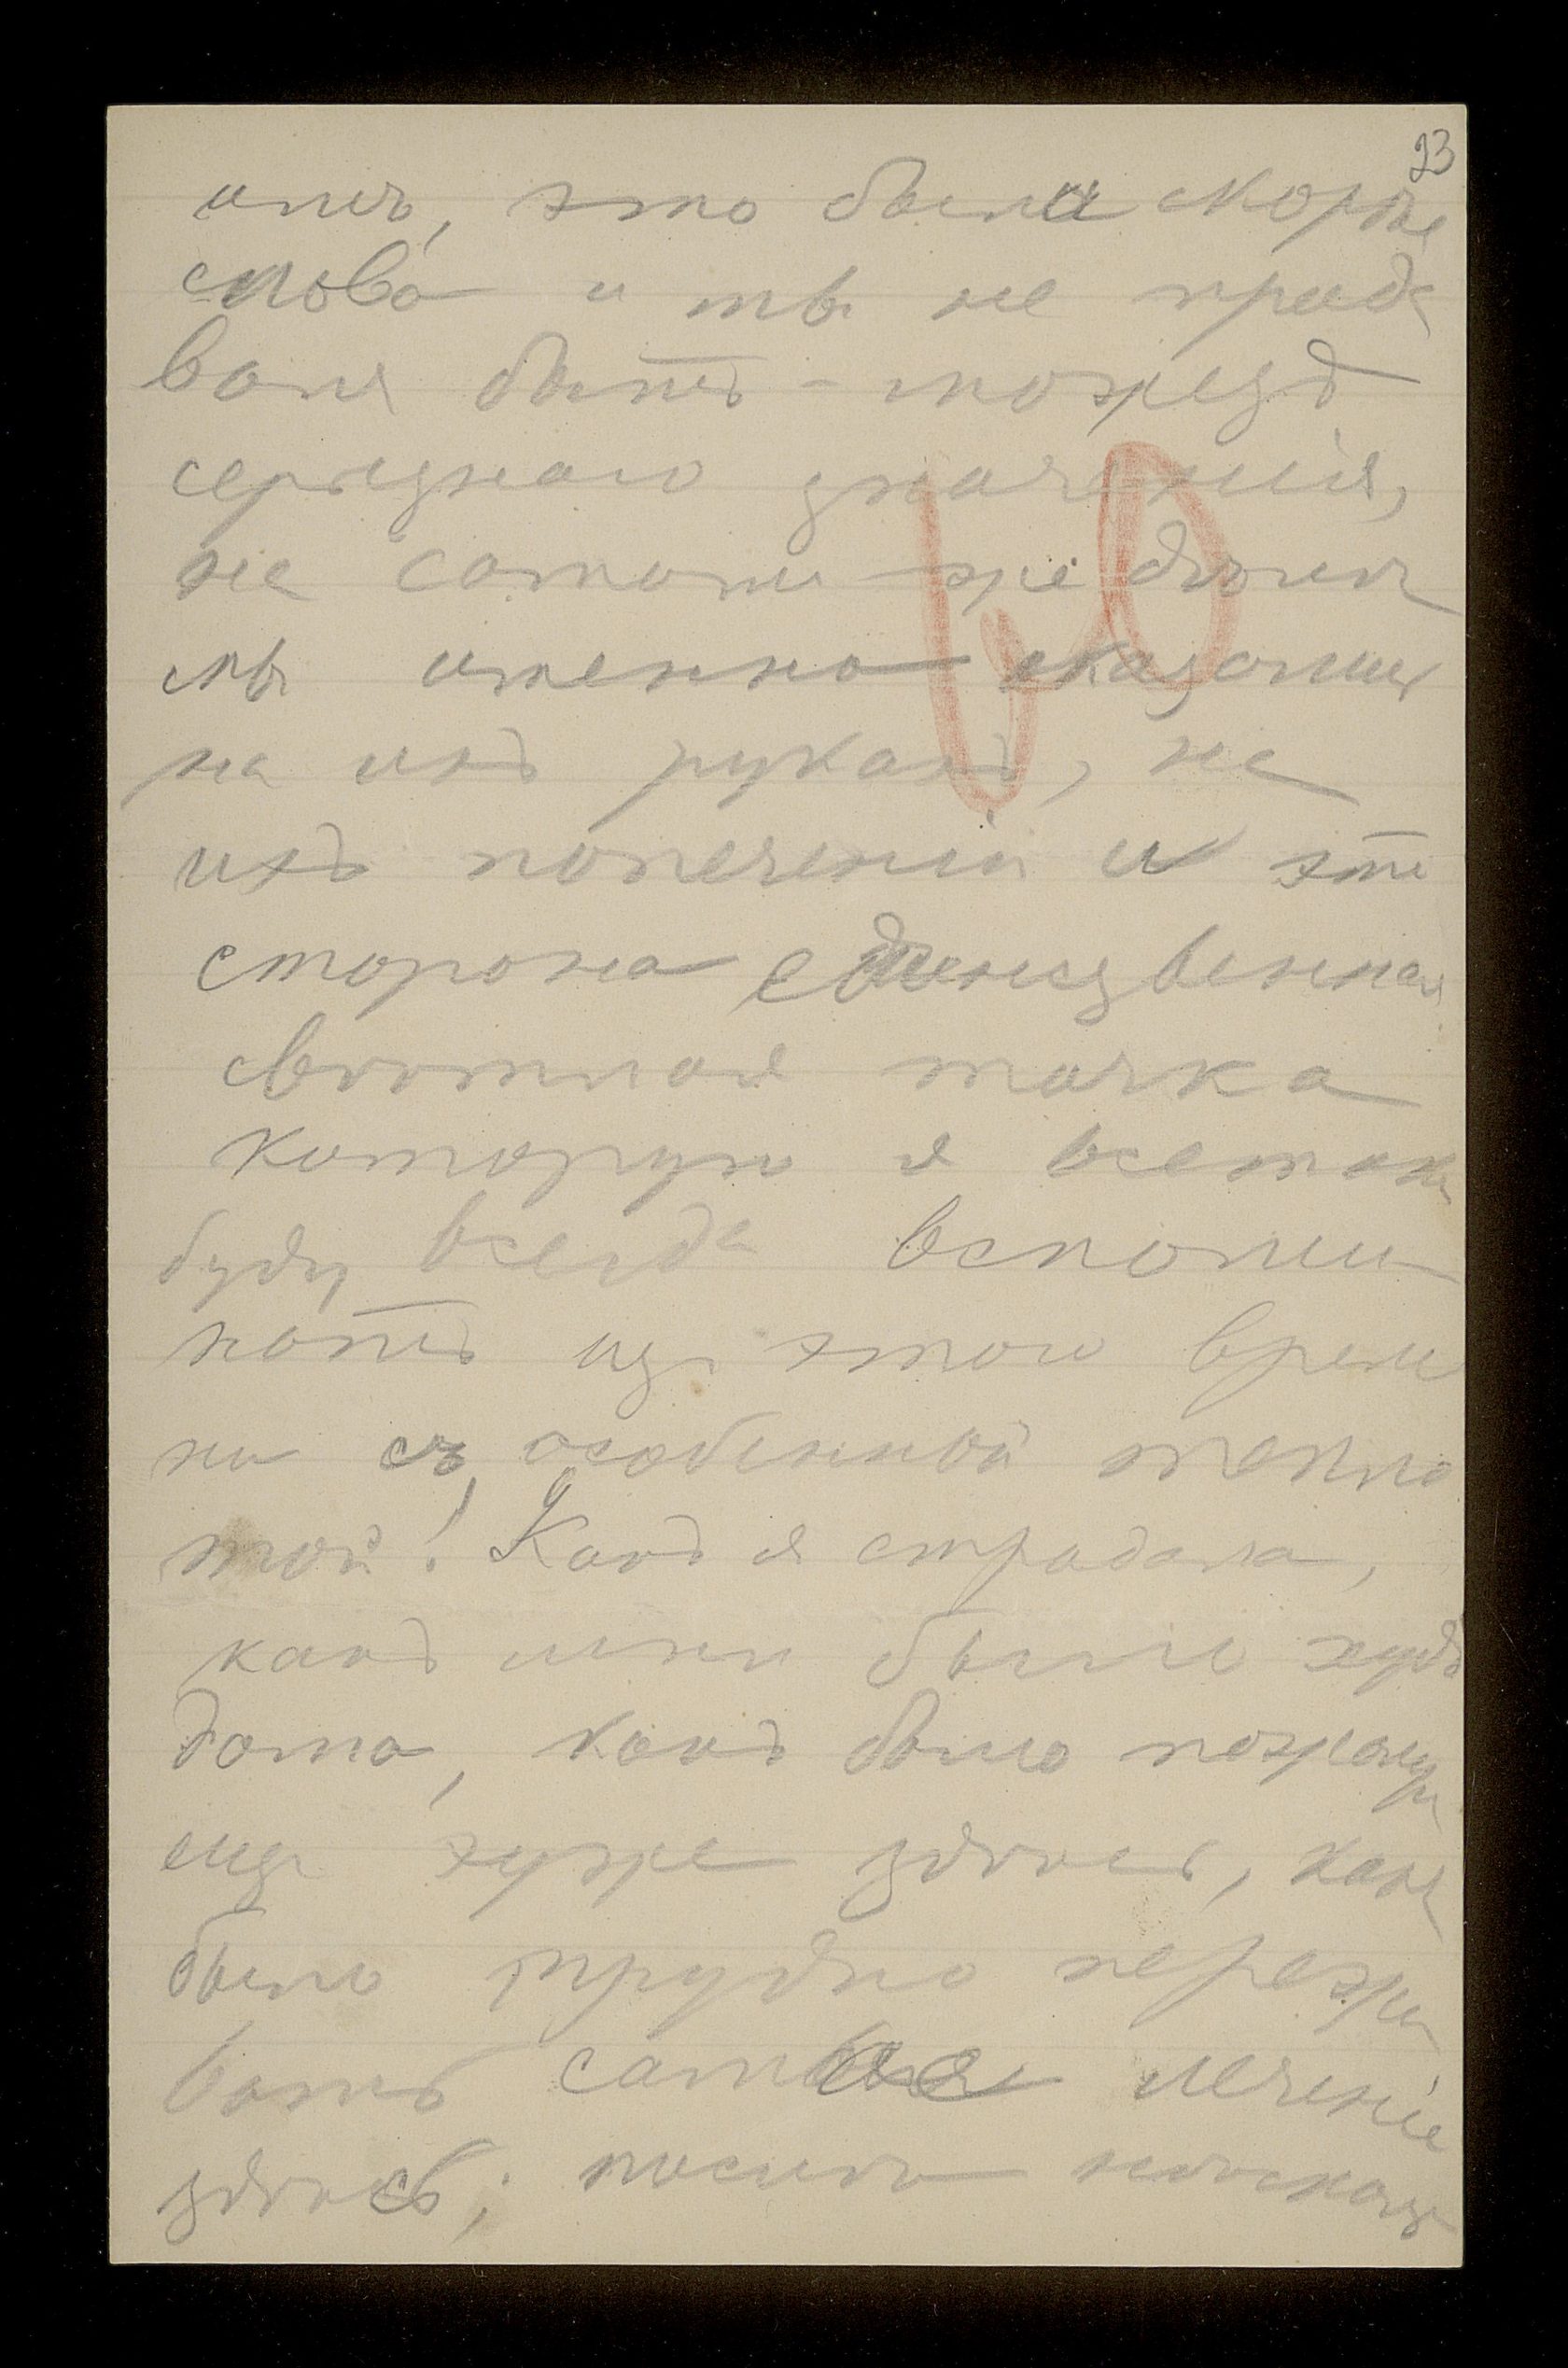 23
или, это были скорѣе
слова и ты не прида
вай быть-можетъ
серьезнаго значенія,
на самомъ же дѣлѣ
мы именно оказались
на ихъ рукахъ, на
ихъ попеченіи и эта
сторона единственная
свѣтлая точка
которую я всетаки
буду всегда вспоми
нать изъ этого време
ни съ особенной тепло
той! Какъ я страдала,
какъ мнѣ было худо
дома, какъ было пожалуй
еще хуже здѣсь, какъ
было трудно пережи
вать самое леченіе
здѣсь; послѣ